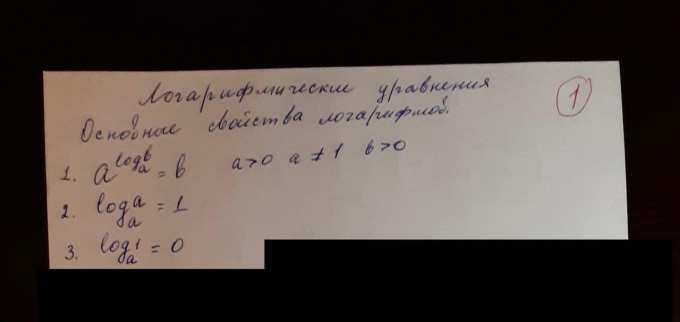 Логарифмические уравнения
1
Основные свойства логарифмов.
1. a^{log_a^b} = b a>0 a≠1 b>0
2. log_a^a = 1
3. log_a^1 = 0